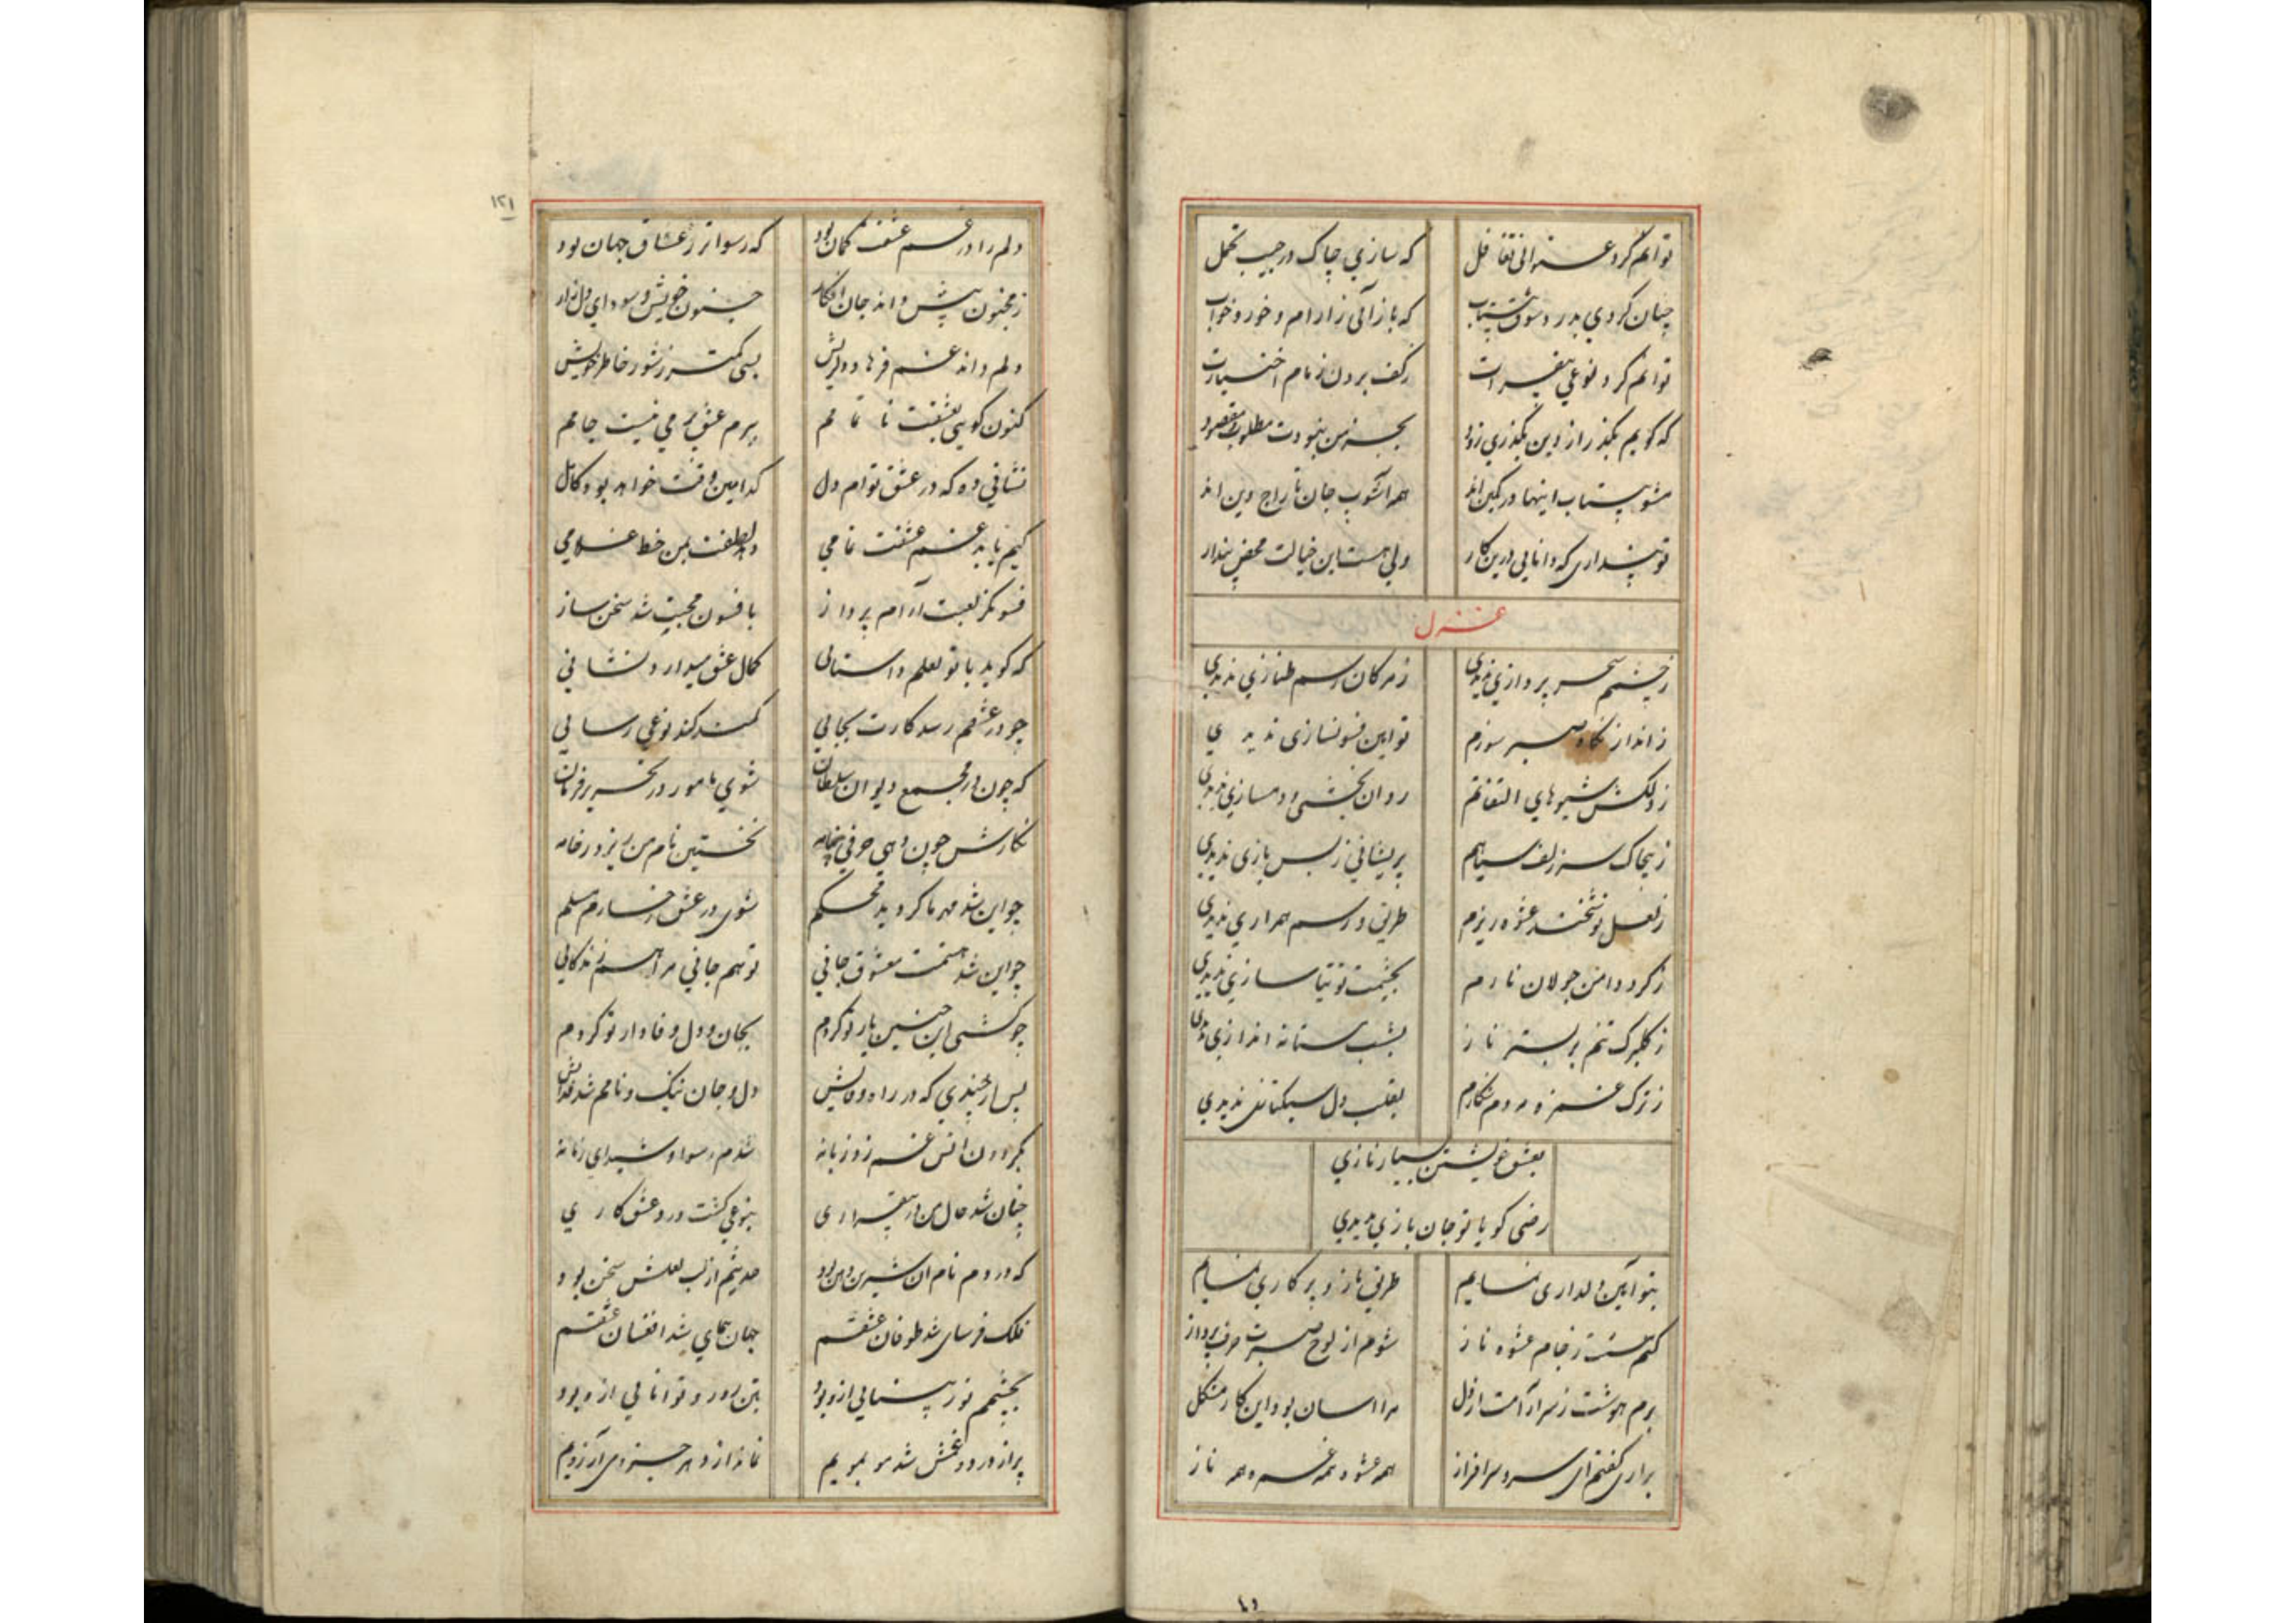 توانم کرد عسرانی تغافل که سازی چاک در جیب تحمل
چنان کردی بدرد شوق بیتاب که بازآئی ز ارام و خور و خواب
توانم کرد نوعی بیقرارت ز کف بردن زمام اختیارت
که گویم بگذر از دین بگذری زود بجز من نبودت مطلوب و مقصود
مشو بیتاب اینها در کمین اند همه آشوب جان تاراج دین اند
تو پنداری که دانایی درین کار ولی هست این خیالت محض پندار
غزل
ز چشمم سحر پردازی ندیدی ز مژکان رسم طنازی ندیدی
ز انداز نگاه صبر سوزم تو این فسونسازی ندیدی
ز دلکش شیوهای التفاتم روان بخشی و دمسازی ندیدی
ز پیچاک سر زلف سیاهم پریشانی ز بس بازی ندیدی
ز لعل نوشخند عشوه ریزم طریق و رسم همرازی ندیدی
ز کرد دامن جولان نازم بچشمت توتیا سازی ندیدی
ز کلبرک تنم بر بستر ناز بشب مستانه اندازی ندیدی
ز ترک غمزه مردم شکارم بقلب دل سبکتازی ندیدی
بعشق خویشتن بسیار نازی
رضی کویا تو جان بازی ندیدی
بتو آیین دلداری نمایم طریق ناز و پرکاری نمایم
کنم مستت ز جام عشوه ناز شوم از لوح صبرت حرف پرداز
برم هوشت ز سر آرامت از دل مرا اسان بود این کار مشکل
برای کفتم ای سرو سرافراز همه عشوه همه غمزه همه ناز
۱۲۱
دلم را در غم عشقت کمان بود که رسواتر ز عشاق جهان بود
ز مجنون بیش داند جان افکار جنون خویش و سودای دل زار
دلم داند غم فرهاد دلریش بسی کمتر ز شور خاطر خویش
کنون کویی بعشقت ناتمامم ببزم عشق می نیست جامم
نشانی ده که در عشق توام دل کدامین وقت خواهد بود کامل
کیم یابد غم عشقت تمامی دهد لطفت بمن خط غلامی
فسونکر لعبت آرام پرداز بافسون محبت شد سخن ساز
که کوید با تو لعلم داستانی کمال عشق میدارد نشانی
چو در عشقم رسد کارت بجایی کمندت کند نوعی رسایی
که چون در مجمع دیوان سلطان شوی مامور در تحریر فرمان
نکارش چون دهی حرفی بخامه نخستین نام من ریزد ز خامه
چو این شد مهر ما کردید محکم شوی در عشق رخسارم مسلم
چو این شد همتت معشوق جانی تو هم جانی مرا هم زندکانی
چو کشتی این چنین یار تو کردم بجان و دل وفادار تو کردم
پس از چندی که در راه وفایش دل و جان ننک و نامم شد فدایش
بکردون اتش غم زد زبانه شدم رسوا و شیدای زمانه
چنان شد حال من در بیقراری بنوعی کشت درد عشق کاری
که وردم نام ان شیرین دهن بود حدیثم از لب لعلش سخن بود
فلک فرسای شد طوفان عشقم جهان پیمای شد افغان عشقم
بچشمم نور بینایی ازو بود بتن زور و توانایی ازو بود
پر از درد و غمش شد مو بمویم نماند از وی بجز وی آرزویم